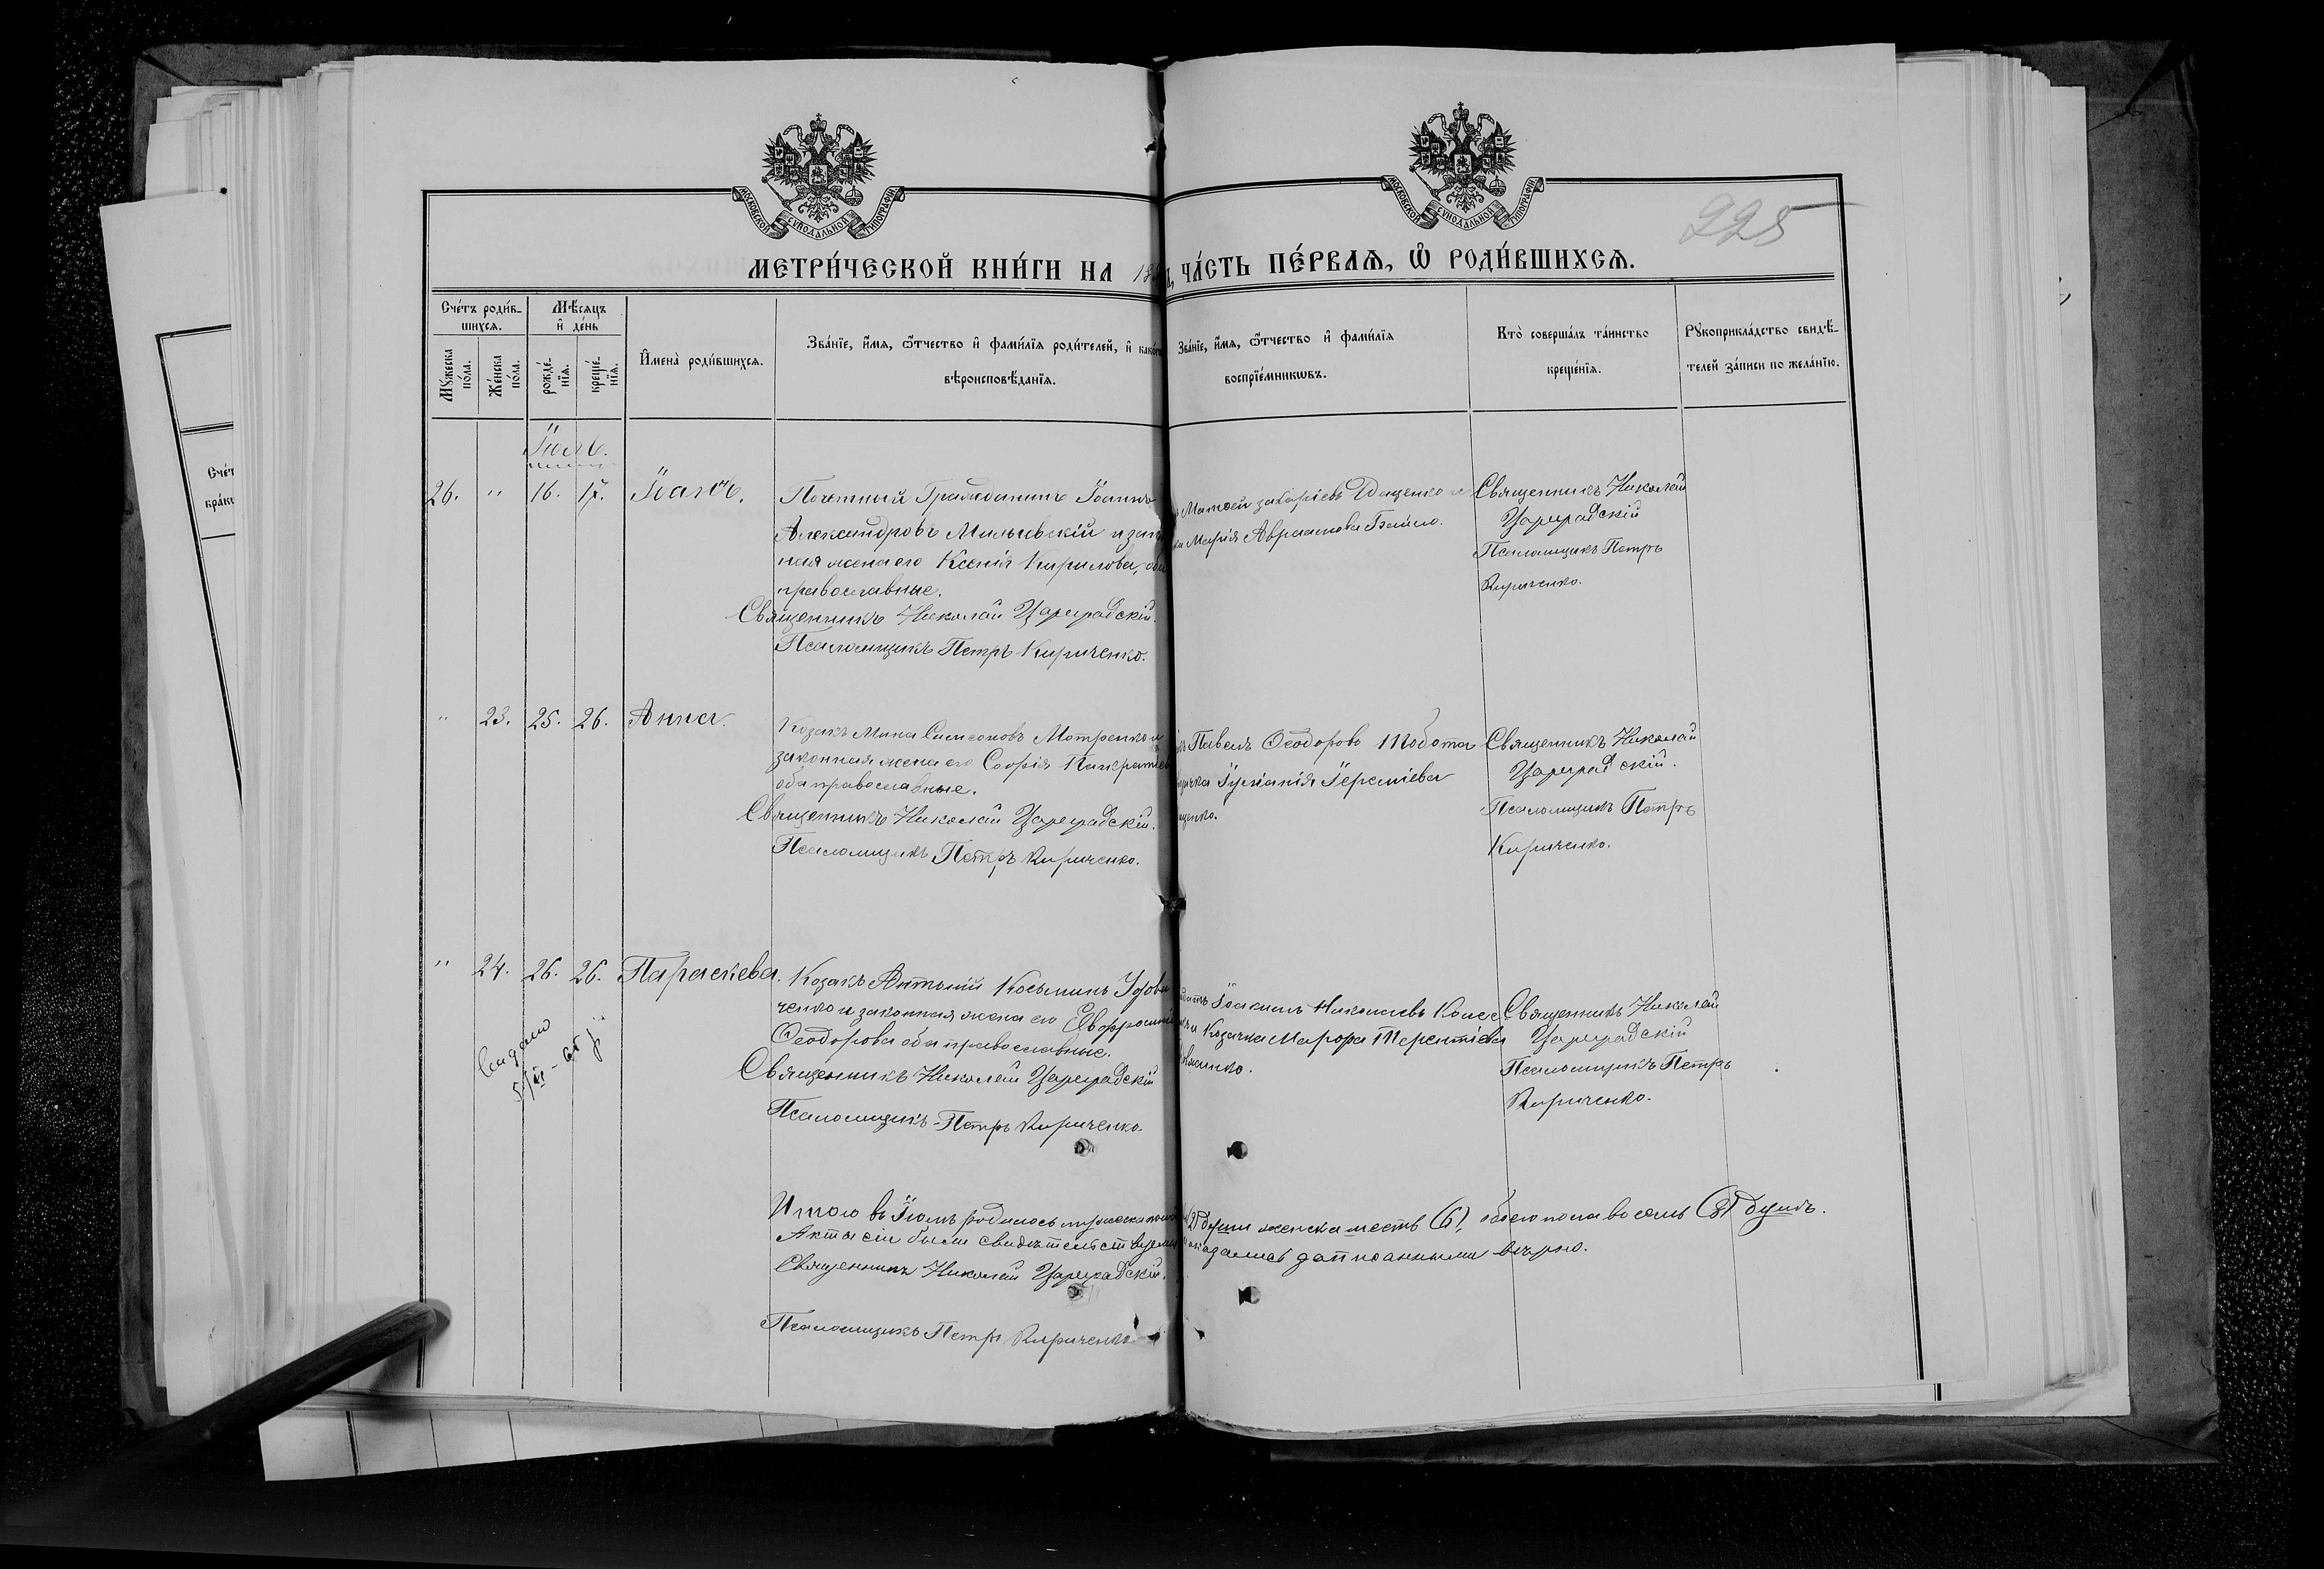 МОСКОВСКОЙ СѴНОДАЛЬНОЙ ТИПОГРАФІИ
МОСКОВСКОЙ СѴНОДАЛЬНОЙ ТИПОГРАФІИ
225
МЕТРИ́ЧЕСКОЙ КНИ́ГИ НА 18
ЧА́СТЬ ПЕ́РВАѦ, Ѡ҆ РОДИ́ВШИХСѦ.
Сче́тъ роди́в-
шихсѧ.
Мꙋжеска по́ла.
Же́нска по́ла.
Мѣ́сѧцъ
и҆ де́нь
рожде́-
нїѧ.
креще́-
нїѧ.
И҆мена̀ роди́вшихсѧ.
Зва́нїе, и҆́мѧ, ѻ҆́тчество и҆ фами́лїѧ роди́телей, и҆
вѣроисповѣ́данїѧ.
Зва́нїе, и҆́мѧ, ѻ҆́тчество и҆ фами́лїѧ
воспрїе́мникѡвъ.
Кто̀ соверша́лъ та́инство
креще́нїѧ.
Рꙋкоприкла́дство свидѣ́-
телей за́писи по жела́нїю.
Сче́т
бра́ко
Іюль.
26. " 16. 17. Іоаннъ.
Почетный Гражданинъ Іоаннъ
Александровъ Мильевскій и закон
ная жена его Ксенія Кирилова, оба
православные.
Священникъ Николай Цареградскій.
Псаломщикъ Петръ Кириченко.
Матвей Захаріевъ Даценко и
Марія Авраамова Бойко.
Священникъ Николай
Цареградскій
Псаломщикъ Петръ
Кириченко.
" 23. 25. 26. Анна.
Козакъ Мина Самсоновъ Мотренко и
законная жена его Софія Панкратіев
оба православные.
Священникъ Николай Цареградскій.
Псаломщикъ Петръ Кириченко.
Павелъ Ѳеодоровъ
Іуліанія Іереміева
щенко.
Священникъ Николай
Цареградскій.
Псаломщикъ Петръ
Кириченко.
" 24. 26. 26. Параскева.
Козакъ Антоній Косьминъ Удови
ченко и законная жена его Евфросині
Ѳеодорова оба православные.
Священникъ Николай Цареградскій
Псаломщикъ Петръ Кириченко.
Іоакимъ Николаевъ
и Козачка Марѳа Терентіева
Священникъ Николай
Цареградскій
Псаломщикъ Петръ
Кириченко.
Выдано
Итого въ Іюлѣ родилось мужеска пола
2) души женска шесть (6), обоего пола восемь (8) душъ.
Акты сіи были свидѣтельствуемы
оказались записанными вѣрно.
Священникъ Николай Цареградскій.
Псаломщикъ Петръ Кириченко